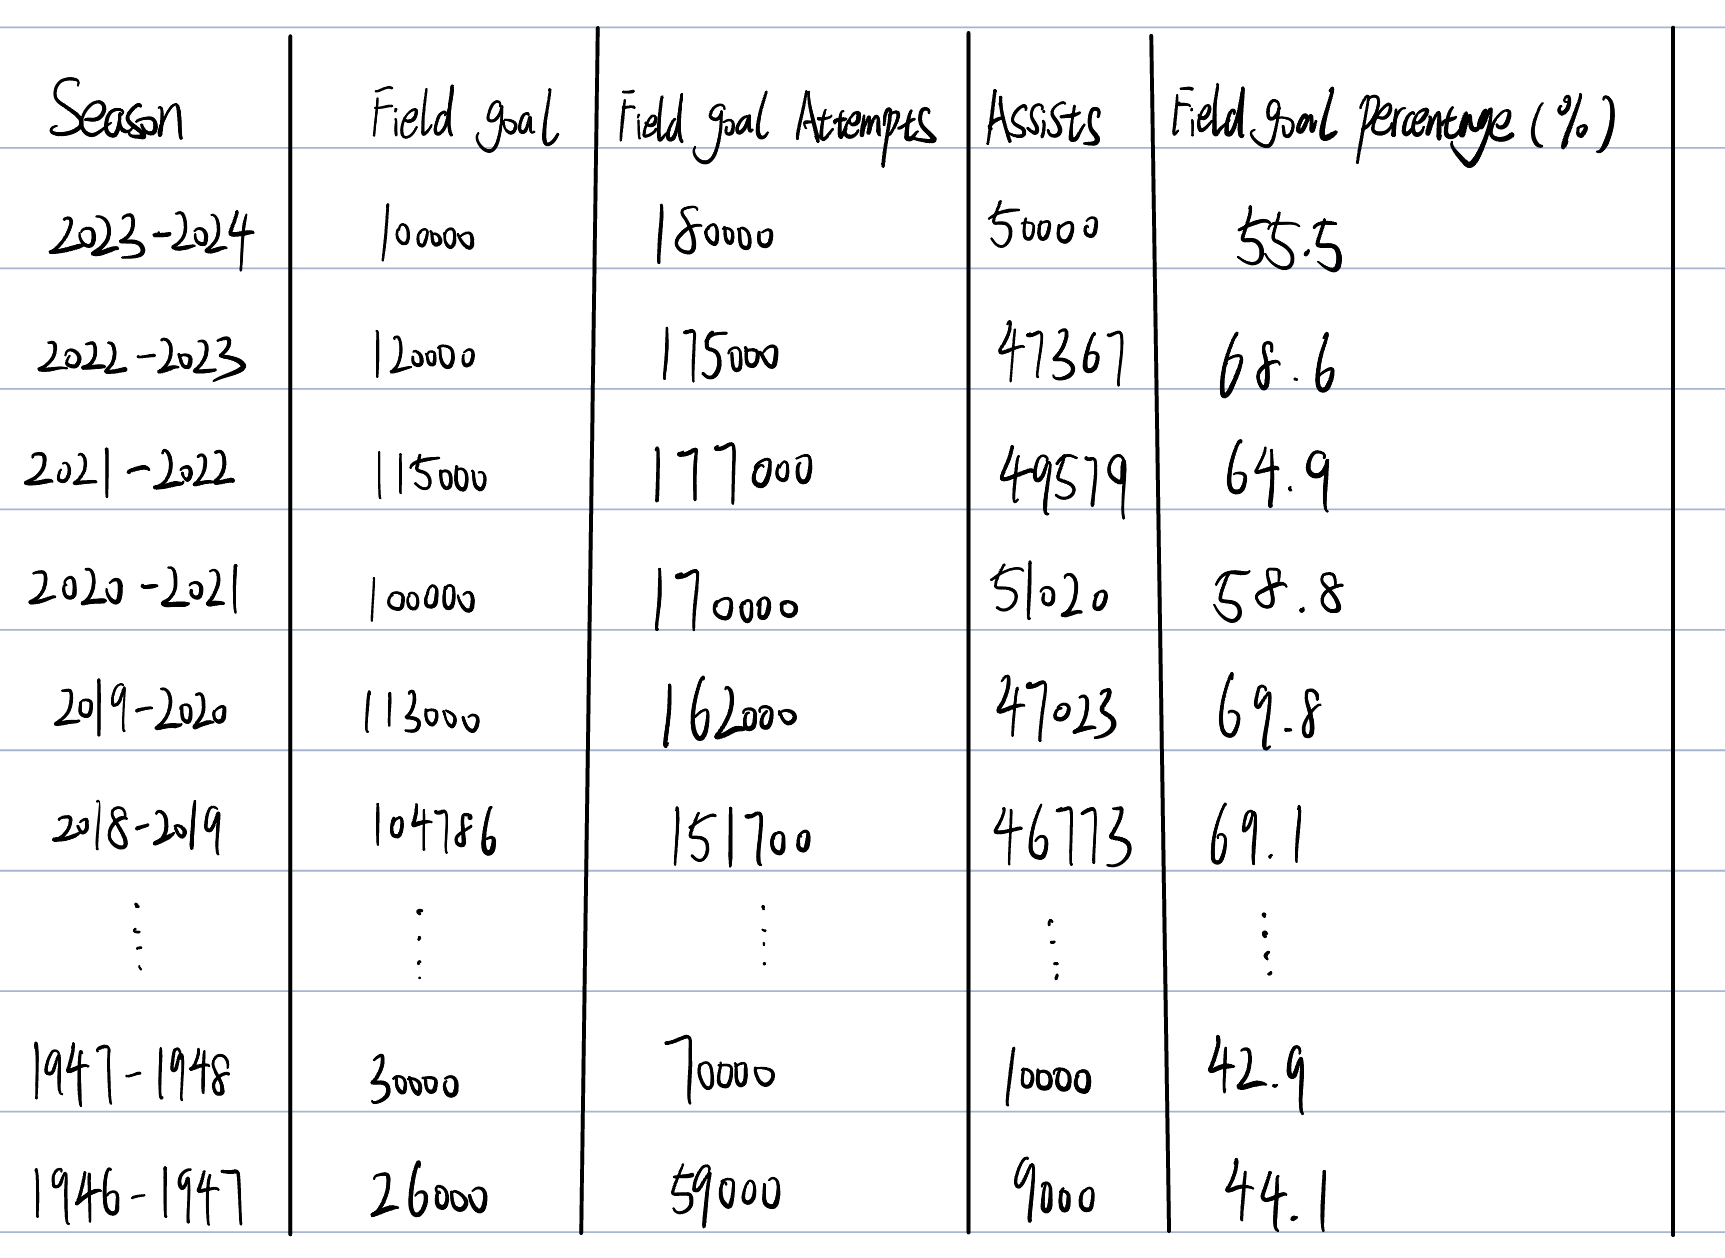 Season Field goal Field goal Attempts Assists Field goal percentage (%)
2023-2024 100000 180000 50000 55.5
2022-2023 120000 175000 47367 68.6
2021-2022 115000 177000 49579 64.9
2020-2021 100000 170000 51020 58.8
2019-2020 113000 162000 47023 69.8
2018-2019 104786 151700 46773 69.1
1947-1948 30000 70000 10000 42.9
1946-1947 26000 59000 9000 44.1